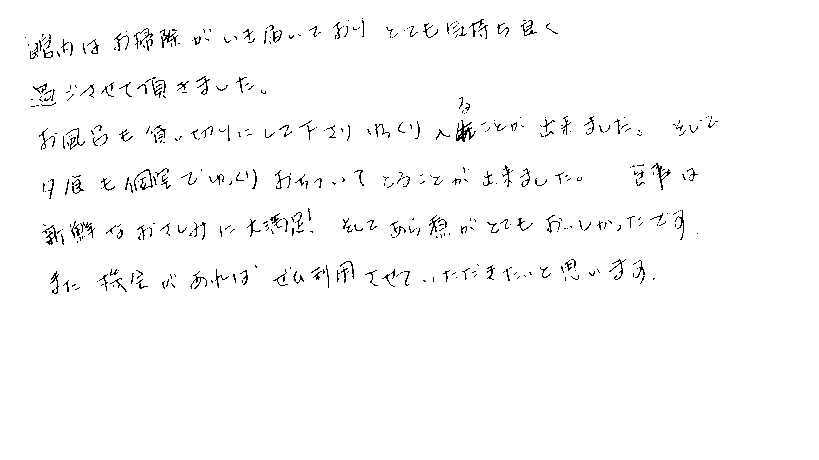 館内はお掃除がいき届いておりとても気持ち良く
過ごさせて頂きました。
お風呂も貸し切りにして下さりゆっくり入ることが出来ました。そして
夕食も個室でゆっくりおちついてとることが出来ました。食事は
新鮮なおさしみに大満足！そしてあら煮がとてもおいしかったです.
また機会があればぜひ利用させていただきたいと思います.